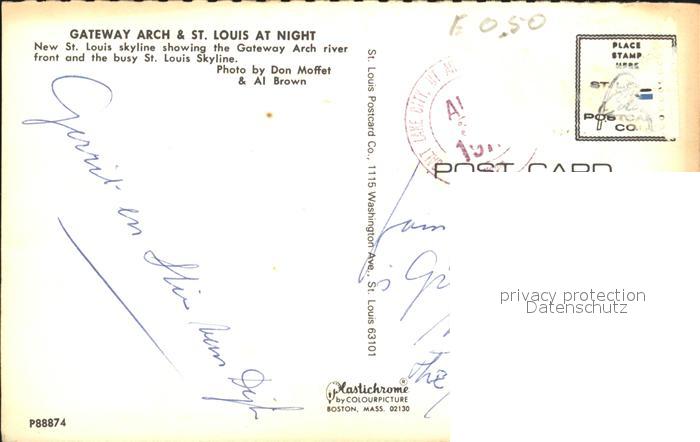 GATEWAY ARCH & ST. LOUIS AT NIGHT
New St. Louis skyline showing the Gateway Arch river
front and the busy St. Louis Skyline.
Photo by Don Moffet
& Al Brown
€ 0,50
PLACE
STAMP
HERE
ST. L
POSTCA
CO.
SALT LAKE CITY, UT
POST CARD
St. Louis Postcard Co., 1115 Washington Ave., St. Louis 63101
Gerrit en
van
fam
Plastichrome®
by COLOURPICTURE
BOSTON, MASS. 02130
P88874
privacy protection
Datenschutz